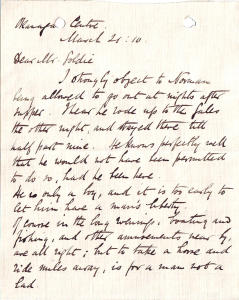 Centre,
March 21: 10.
Dear Mr. Goldie
I strongly object to Norman
being allowed to go out at nights after
supper. I hear he rode up to the
the other night, and stayed there till
half past nine. He knows perfectly well
that he would not have been permitted
to do so, had he been here.
He is only a boy, and it is too early to
let him have a man's liberty.
Of course in the long evenings, boating and
fishing, and other amusements near by,
are all right; but to take a horse and
ride miles away, is for a man not a
lad.